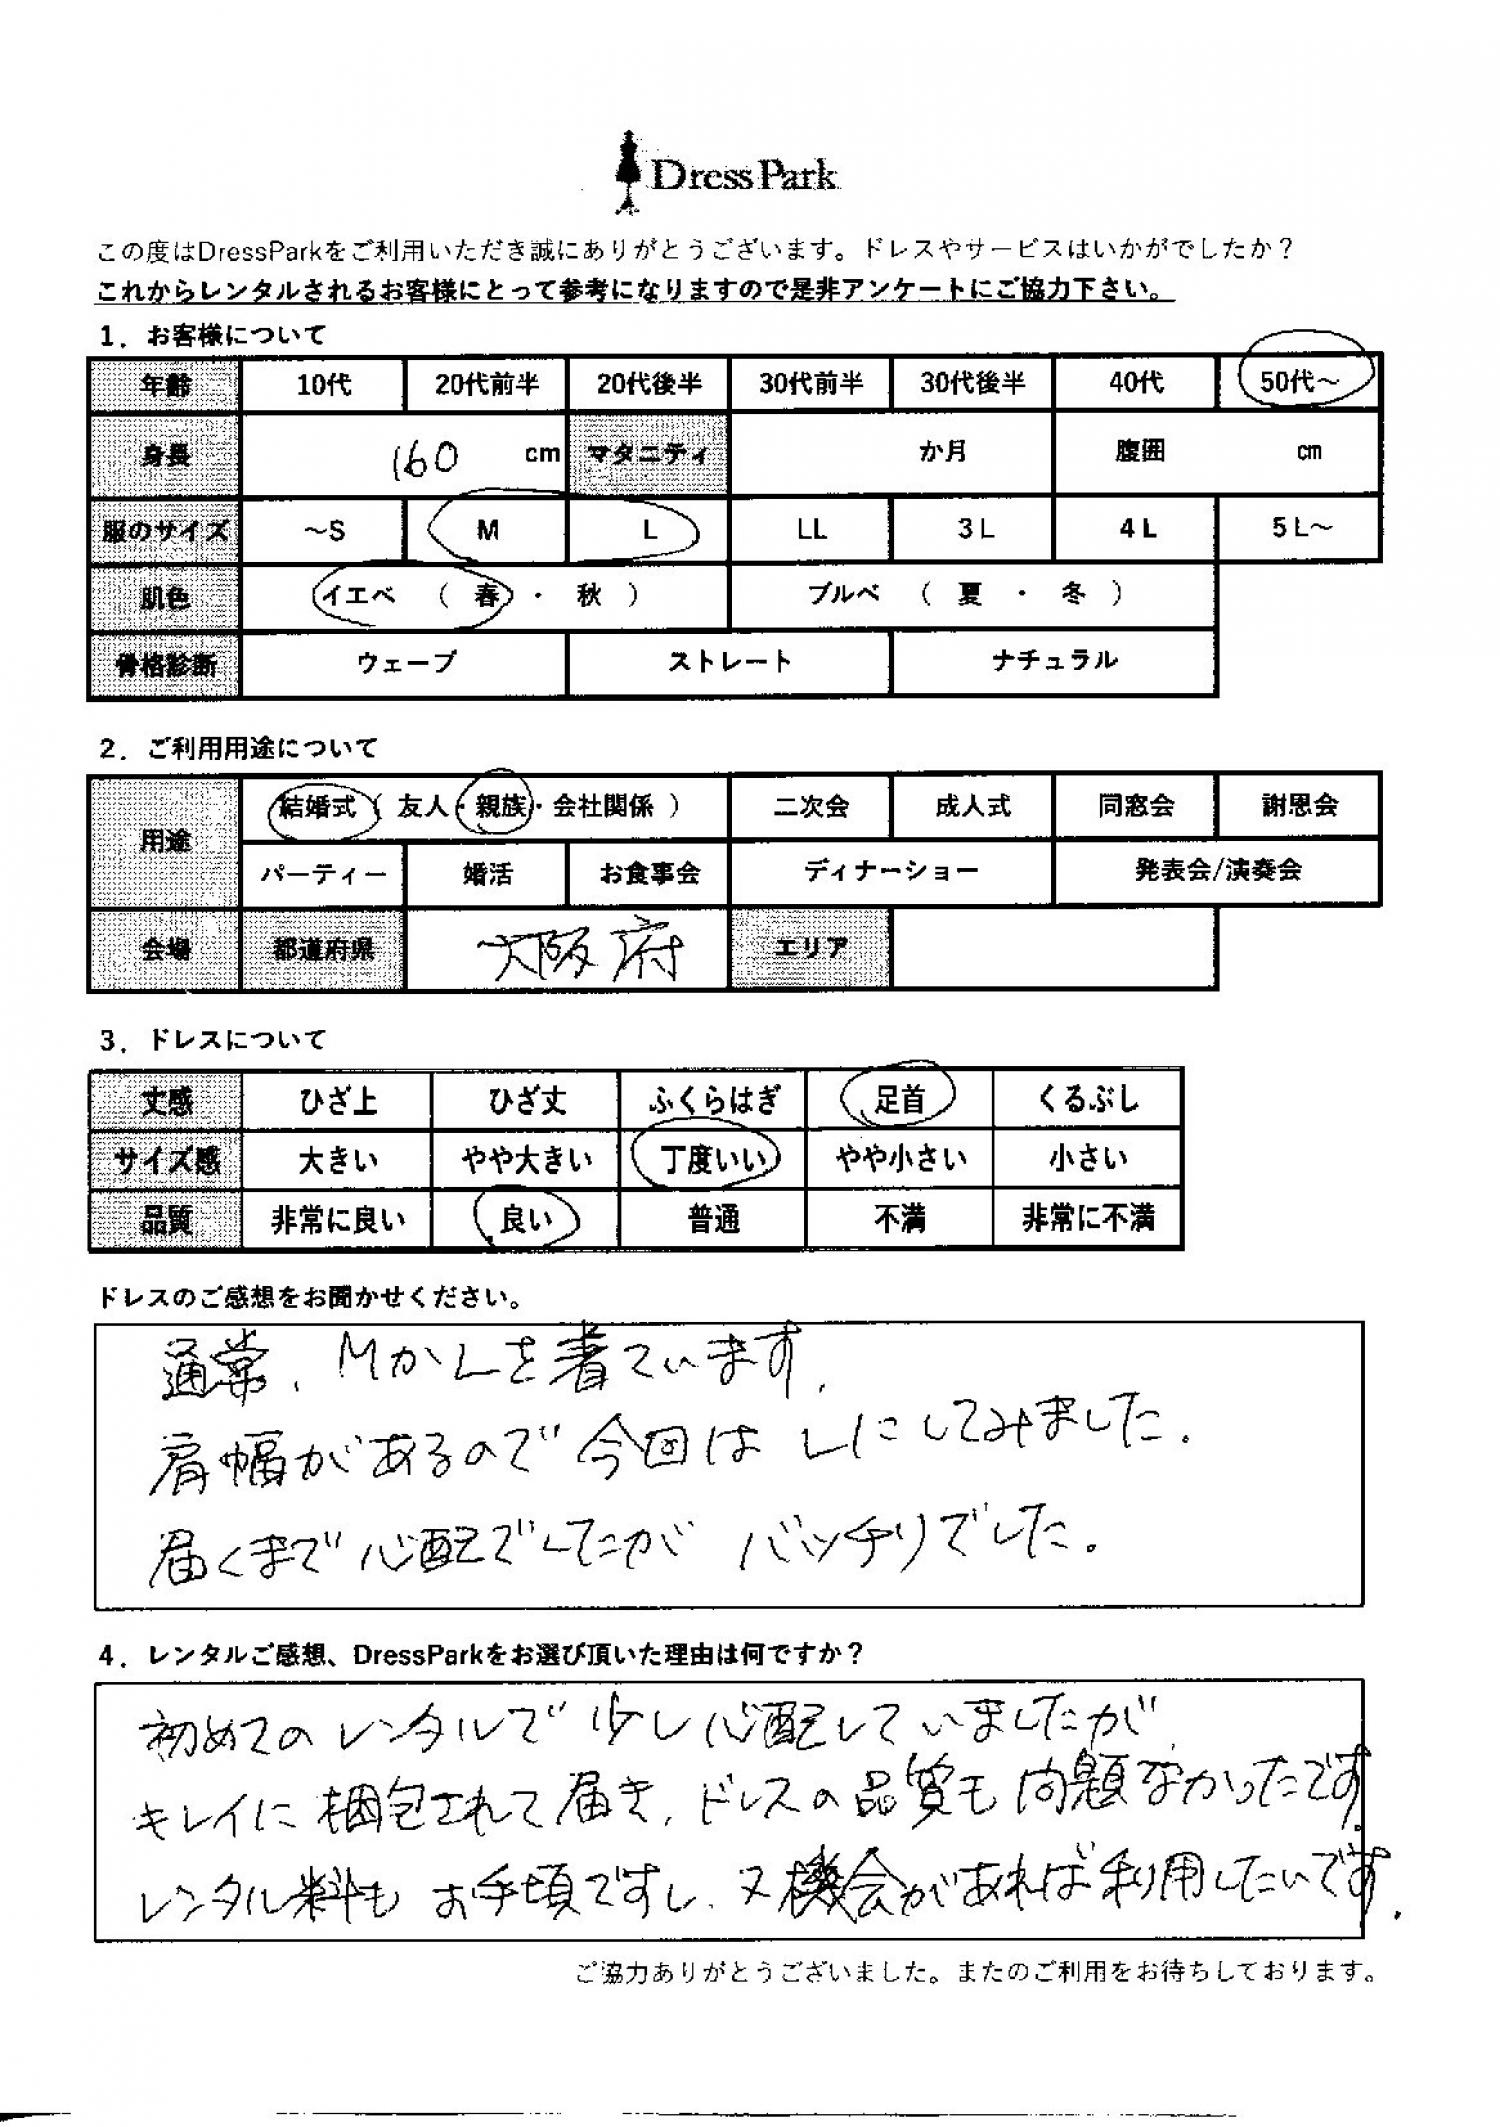 DressPark
この度はDressParkをご利用いただき誠にありがとうございます。ドレスやサービスはいかがでしたか？
これからレンタルされるお客様にとって参考になりますので是非アンケートにご協力下さい。
1．お客様について
年齢 10代 20代前半 20代後半 30代前半 30代後半 40代 50代～
身長 160 cm マタニティ か月 腹囲 cm
服のサイズ ～S M L LL 3L 4L 5L～
肌色 イエベ （ 春 ・ 秋 ） ブルベ （ 夏 ・ 冬 ）
骨格診断 ウェーブ ストレート ナチュラル
2．ご利用用途について
用途 結婚式（ 友人・親族・会社関係 ） 二次会 成人式 同窓会 謝恩会
パーティー 婚活 お食事会 ディナーショー 発表会/演奏会
会場 都道府県 大阪府 エリア
3．ドレスについて
丈感 ひざ上 ひざ丈 ふくらはぎ 足首 くるぶし
サイズ感 大きい やや大きい 丁度いい やや小さい 小さい
品質 非常に良い 良い 普通 不満 非常に不満
ドレスのご感想をお聞かせください。
通常、MかLを着ています。
肩幅があるので今回はLにしてみました。
届くまで心配でしたがバッチリでした。
4．レンタルご感想、DressParkをお選び頂いた理由は何ですか？
初めてのレンタルで少し心配していましたが
キレイに梱包されて届き、ドレスの品質も問題なかったです。
レンタル料もお手頃ですし、又機会があれば利用したいです。
ご協力ありがとうございました。またのご利用をお待ちしております。